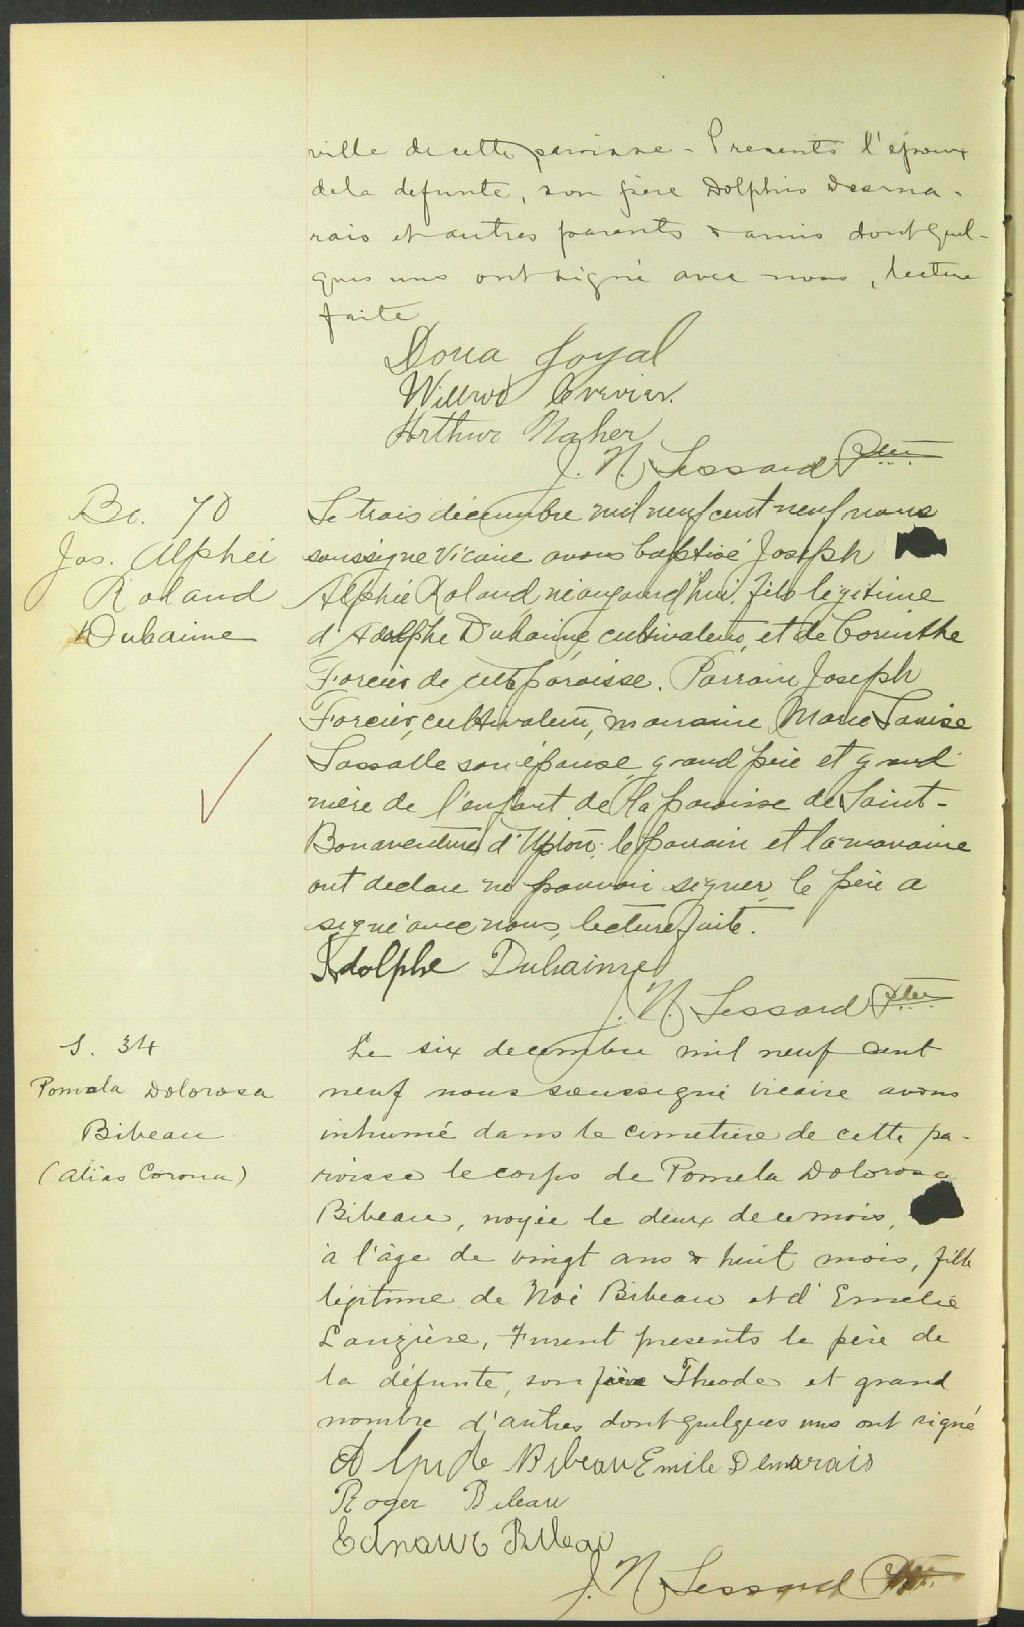 ville de cette paroisse - Presents l'époux
de la defunte, son père Dolphis Desma-
rais et autres parents & amis dont quel-
ques uns ont signé avec nous, lecture
faite
Dona Joyal
Willrod Crevier.
Arthur Maher
J. N. Lessard Ptre
B. 70
Jos. Alphéi
Roland
Duhaime
Le trois décembre mil neuf cent neuf nous
soussigne Vicaire avons baptisé Joseph
Alphéi Roland né aujourd'hui, fils légitime
d'Adolphe Duhaime, cultivateur, et de Corinthe
Forcier de cette paroisse. Parrain Joseph
Forcier, cultivateur, marraine Marie Louise
Lassalle son épouse, grand père et grand
mère de l'enfant de la paroisse de Saint-
Bonaventure d'Upton; le parrain et la marraine
ont declare ne pouvoir signer, le père a
signé avec nous, lecture faite.
Adolphe Duhaime
J. N. Lessard Ptre
S. 34
Pomela Dolorosa
Bibeau
(alias Corona)
Le six decembre mil neuf cent
neuf nous soussigné vicaire avons
inhumé dans le cimetiere de cette pa-
roisse le corps de Pomela Dolorosa
Bibeau, noyée le deux de ce mois,
à l'âge de vingt ans & huit mois, fille
légitime de Noé Bibeau et d'Emelie
Lanzière, Furent presents le père de
la défunte, son frère Theode et grand
nombre d'autres dont quelques uns ont signé
Bibeau Emile Demarais
Roger Bibeau
Bibeau
J. N. Lessard Ptre